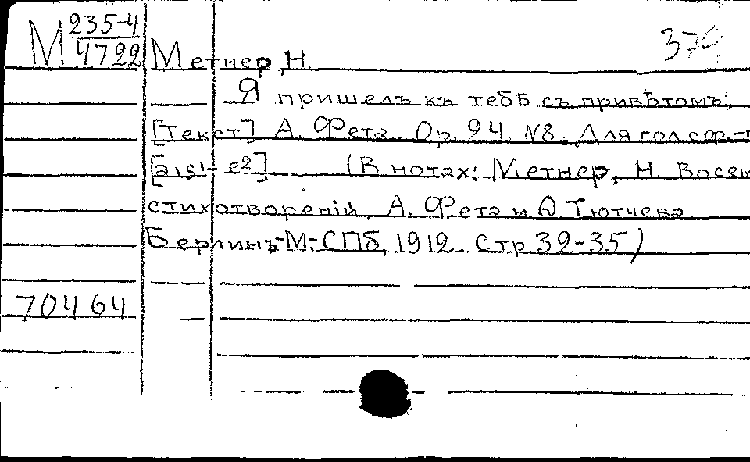 М 235-4
4722
Метнер, Н.
379
Я пришелъ къ тебѣ съ привѣтомъ.
[Текст] А. Фета. Op. 24, №8. Для гол. с ф.-п
[ais¹- e2] (В нотах: Метнер, Н. Восем
стихотвореній А. Фета и Ѳ. Тютчева
Берлинъ-М.-СПБ, 1912. Стр 32-35)
70464